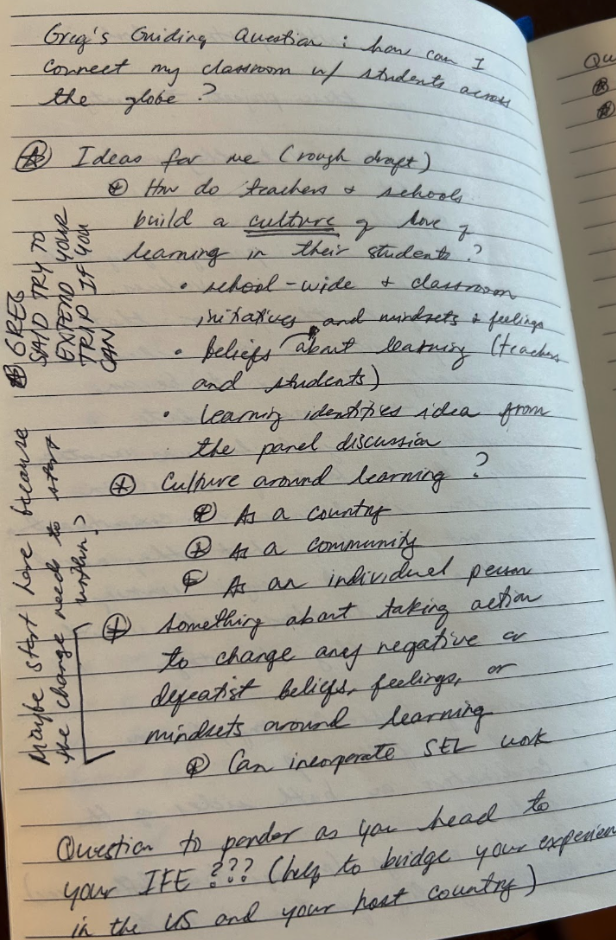 Greg's Guiding Question : how can I
connect my classroom w/ students across
the globe ?
Ideas for me (rough draft)
How do teachers & schools
build a culture of love of
learning in their students ?
• school-wide & classroom
initiatives and mindsets & feelings
• beliefs about learning (teachers
and students)
• learning identities idea from
the panel discussion
Culture around learning ?
As a country
As a community
As an individual person
something about taking action
to change any negative or
defeatist beliefs, feelings, or
mindsets around learning
Can incorporate SEL work
Question to ponder as you head to
your IFE ??? (help to bridge your experien
in the US and your host country)
GREG
SAID TRY TO
EXTEND YOUR
TRIP IF YOU
CAN
Maybe start here because
the change needs to start
within ?
Qu